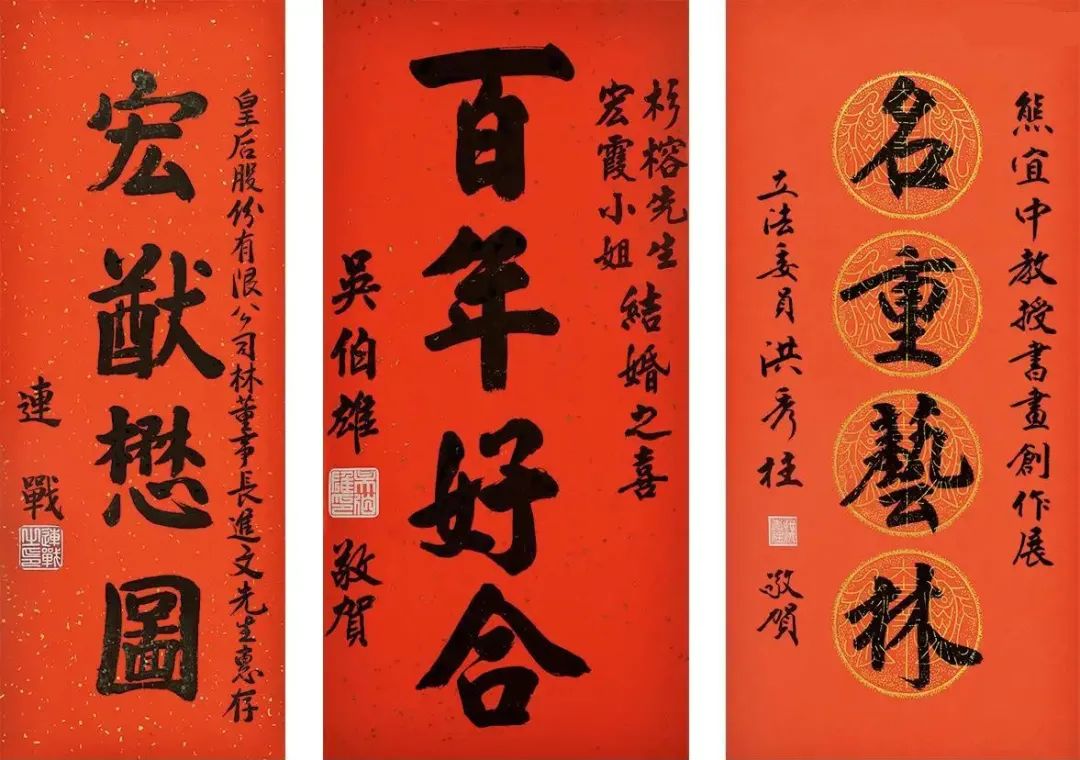 皇后股份有限公司林董事長進文先生惠存
宏猷懋圖
連戰
連戰之印
杉榕先生
宏霞小姐
結婚之喜
百年好合
吳伯雄
吳伯雄印
敬賀
熊宜中教授書畫創作展
名重藝林
立法委員洪秀柱
敬賀